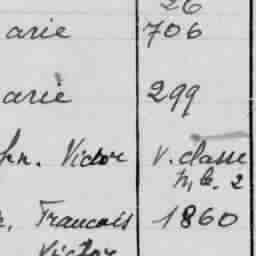 26
arie 706
arie 299
hn. Victor V. classe
n, le. 2
n, Francois 1860
Victor